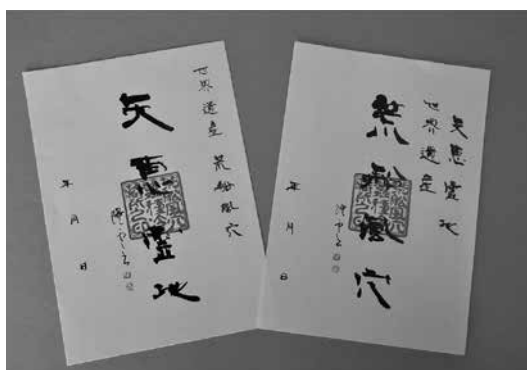 世界遺産 荒船風穴
天恵霊地
年 月 日
天恵霊地
世界遺産
荒船風穴
年 月 日